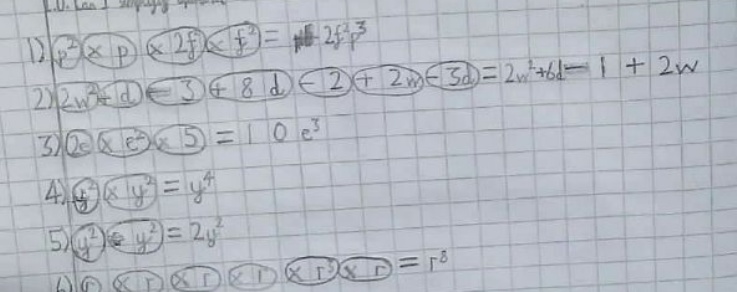 1) p² × p × 2f × f² = 2f³p³
2) 2w² + d - 3 + 8d - 2 + 2w - 3d = 2w² + 6d - 1 + 2w
3) 2e × e² × 5 = 10e³
4) y² × y² = y⁴
5) y² + y² = 2y²
6) r × r × r × r × r³ × r = r⁸